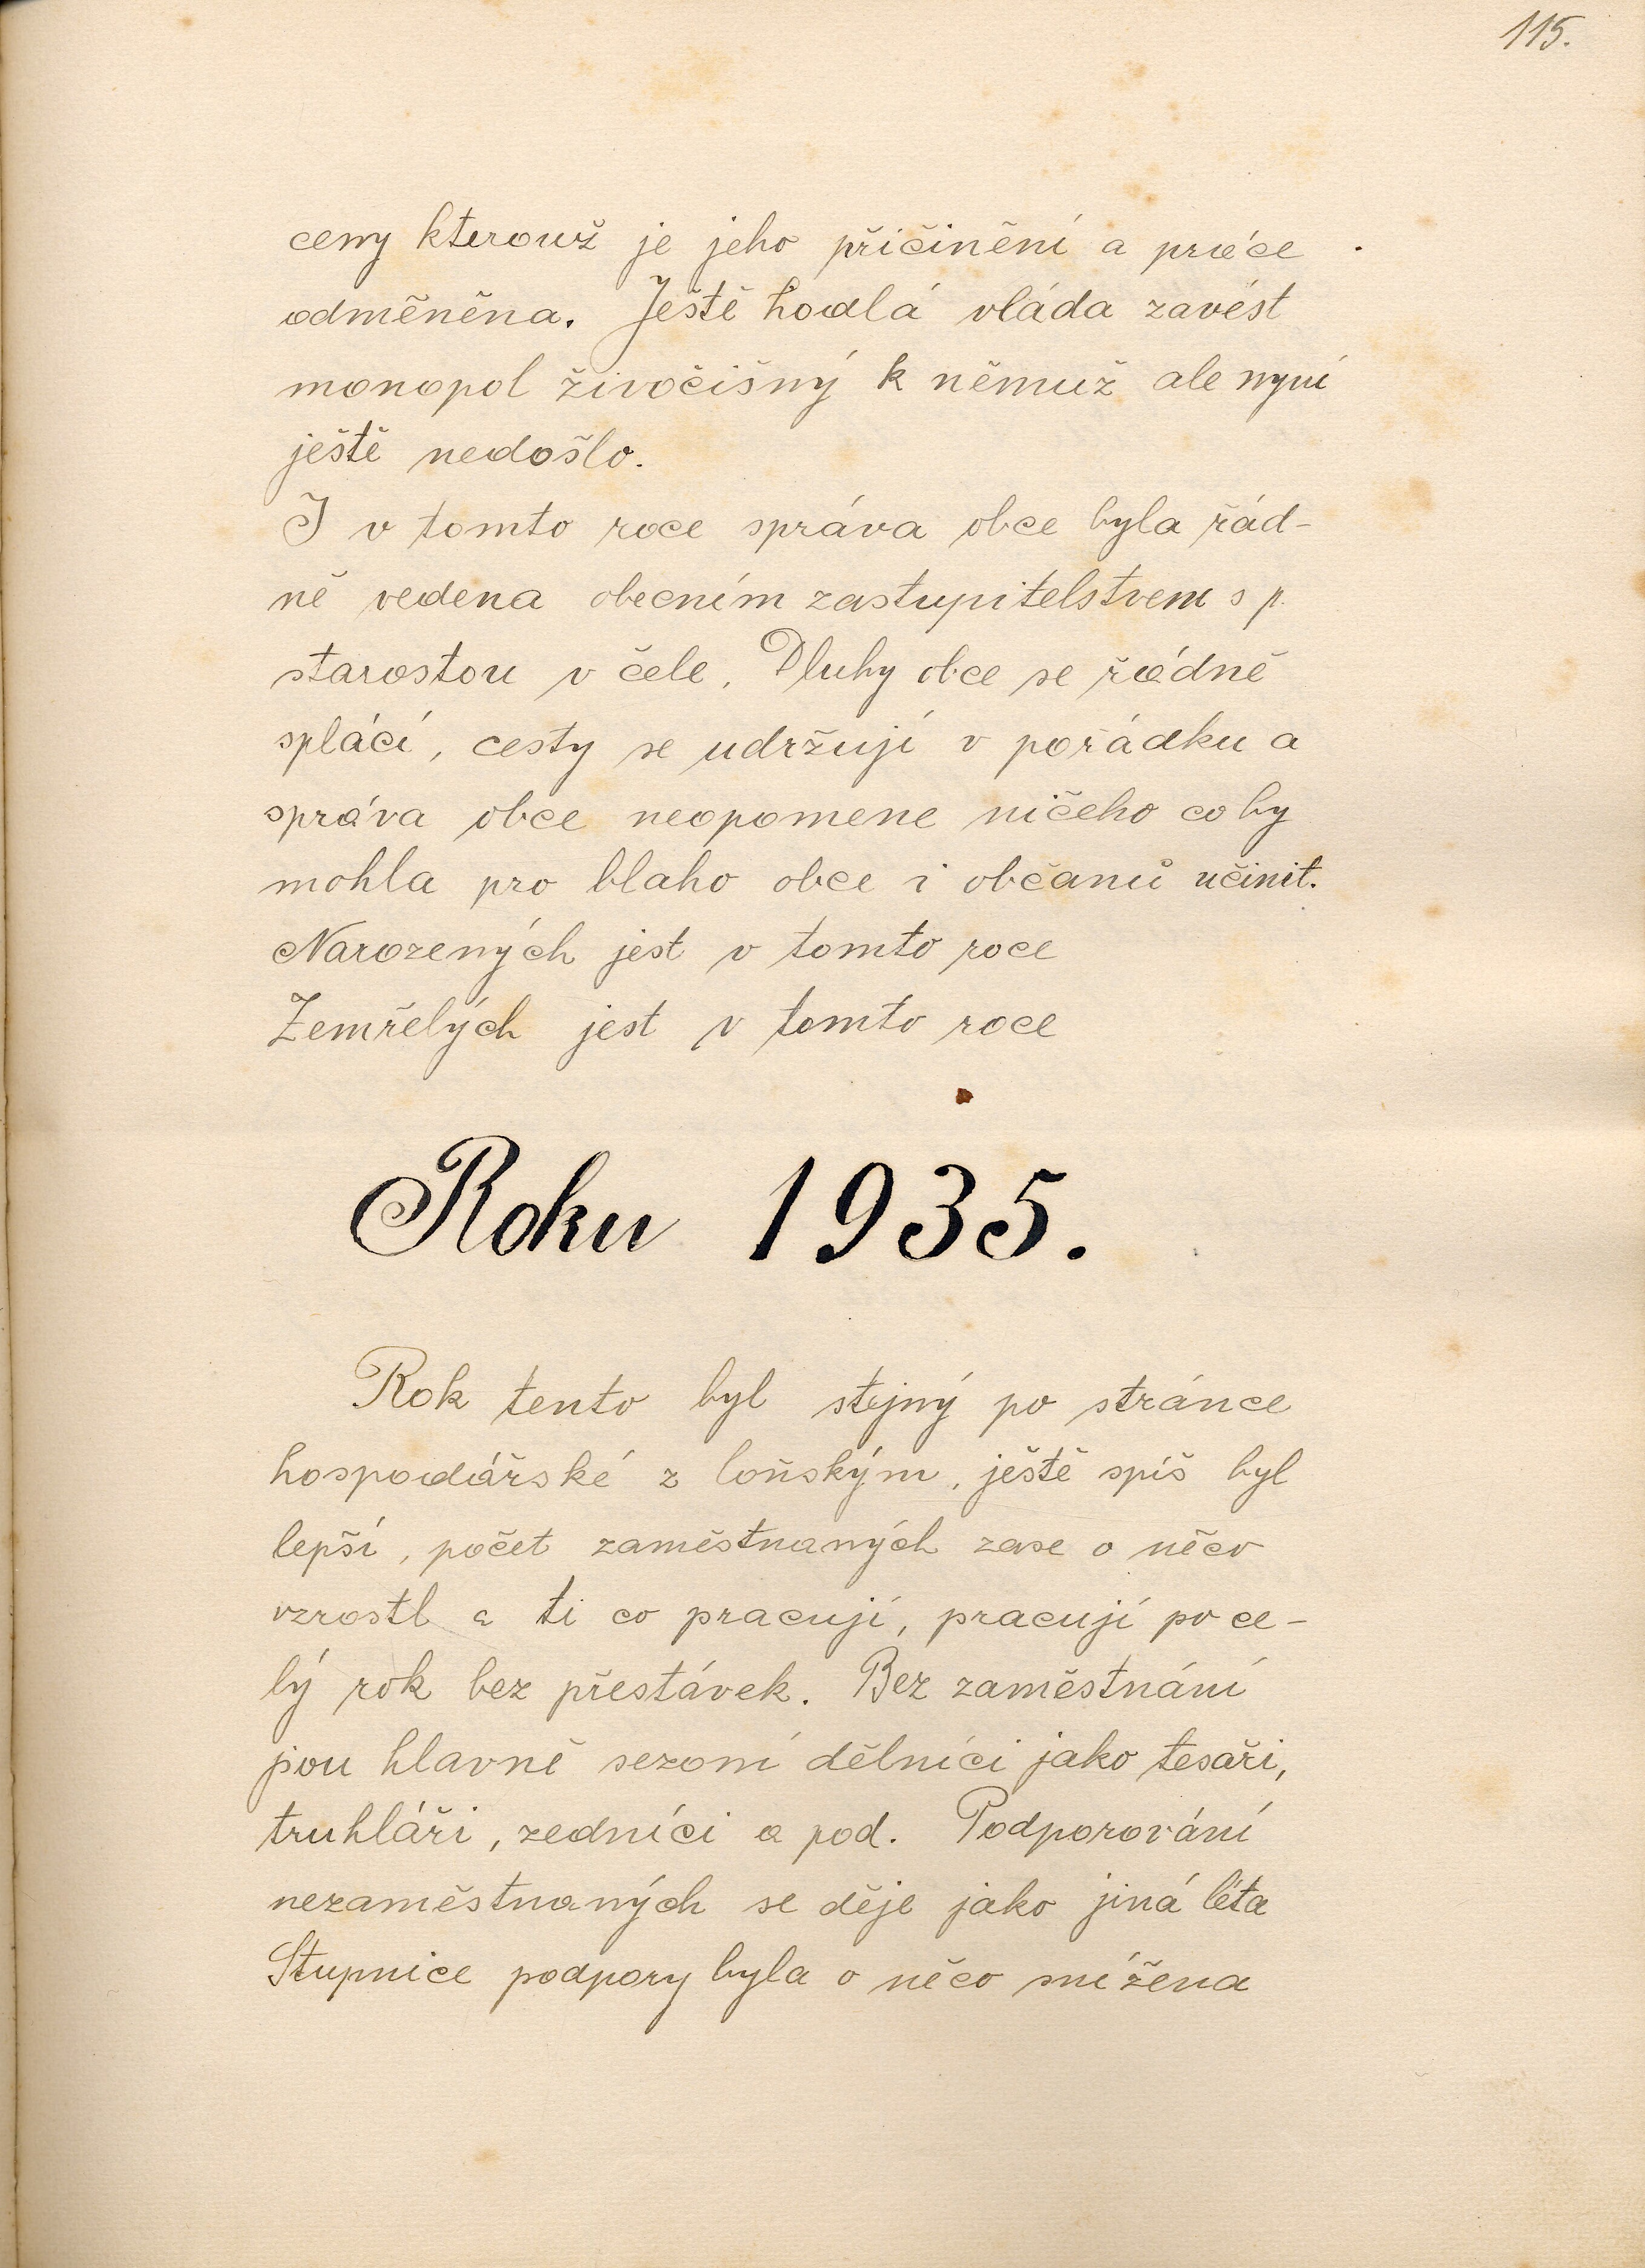 115.
ceny kterouž je jeho přičinění a práce
odměněna. Ještě hodlá vláda zavést
monopol živočišný k němuž ale nyní
ještě nedošlo.
I v tomto roce správa obce byla řád-
ně vedena obecním zastupitelstvem s p.
starostou v čele. Dluhy obce se řádně
splácí, cesty se udržují v pořádku a
správa obce neopomene ničeho co by
mohla pro blaho obce i občanů učinit.
Narozených jest v tomto roce
Zemřelých jest v tomto roce
Roku 1935.
Rok tento byl stejný po stránce
hospodářské z loňským, ještě spíš byl
lepší, počet zaměstnaných zase o něco
vzrostl a ti co pracují, pracují po ce-
lý rok bez přestávek. Bez zaměstnání
jsou hlavně sezoní dělníci jako tesaři,
truhláři, zedníci a pod. Podporování
nezaměstnaných se děje jako jiná léta
Stupnice podpory byla o něco snížena